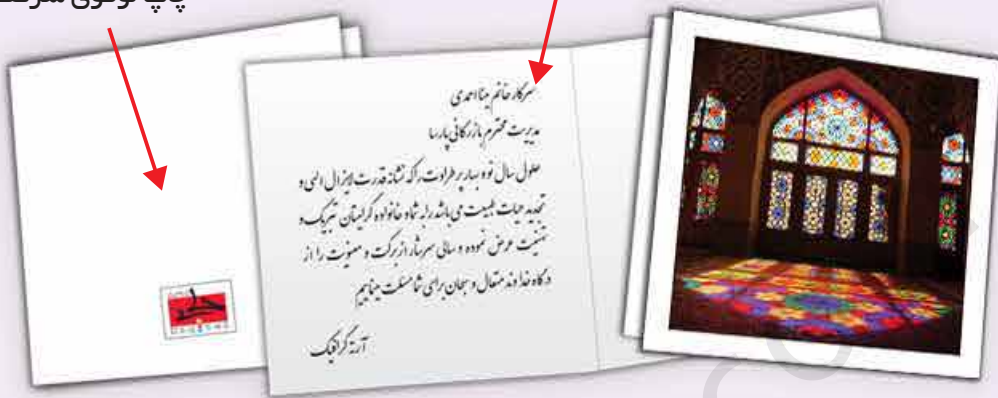 چاپ لوگوی شرکت
سرکار خانم مینا احمدی
مدیریت محترم بازرگانی پارسا
حلول سال نو و بهار پر طراوت را که نشانه قدرت لایزال الهی و
تجدید حیات طبیعت می باشد را به شما و خانواده گرامیتان تبریک و
تهنیت عرض نموده و سالی سرشار از برکت و معنویت را از
درگاه خداوند متعال و سبحان برای شما مسئلت مینماییم
گرافیک